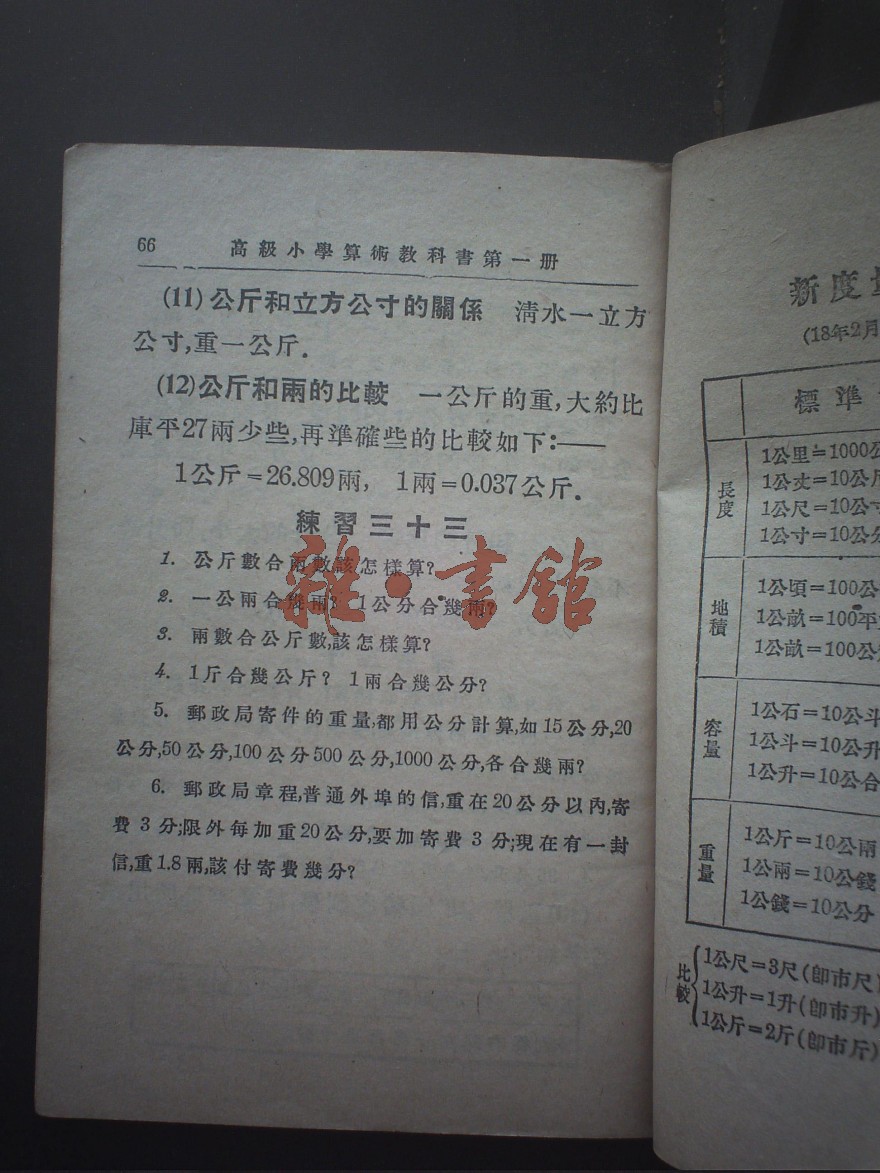 66 高級小學算術教科書第一册
(11)公斤和立方公寸的關係 清水一立方
公寸,重一公斤.
(12)公斤和兩的比較 一公斤的重,大約比
庫平27兩少些,再準確些的比較如下:——
1公斤=26.809兩, 1兩=0.037公斤.
練習三十三
1. 公斤數合兩數該怎樣算?
2. 一公兩合幾兩? 1公分合幾兩?
3. 兩數合公斤數,該怎樣算?
4. 1斤合幾公斤? 1兩合幾公分?
5. 郵政局寄件的重量,都用公分計算,如15公分,20
公分,50公分,100公分500公分,1000公分,各合幾兩?
6. 郵政局章程,普通外埠的信,重在20公分以內,寄
費3分;限外每加重20公分,要加寄費3分;現在有一封
信,重1.8兩,該付寄費幾分?
雜·書館
新度
(18年2月
標準
長度
1公里=1000公
1公丈=10公尺
1公尺=10公寸
1公寸=10公分
地積
1公頃=100公
1公畝=100平
1公畝=100公
容量
1公石=10公斗
1公斗=10公升
1公升=10公合
重量
1公斤=10公兩
1公兩=10公錢
1公錢=10公分
比較
1公尺=3尺(卽市尺)
1公升=1升(卽市升)
1公斤=2斤(卽市斤)